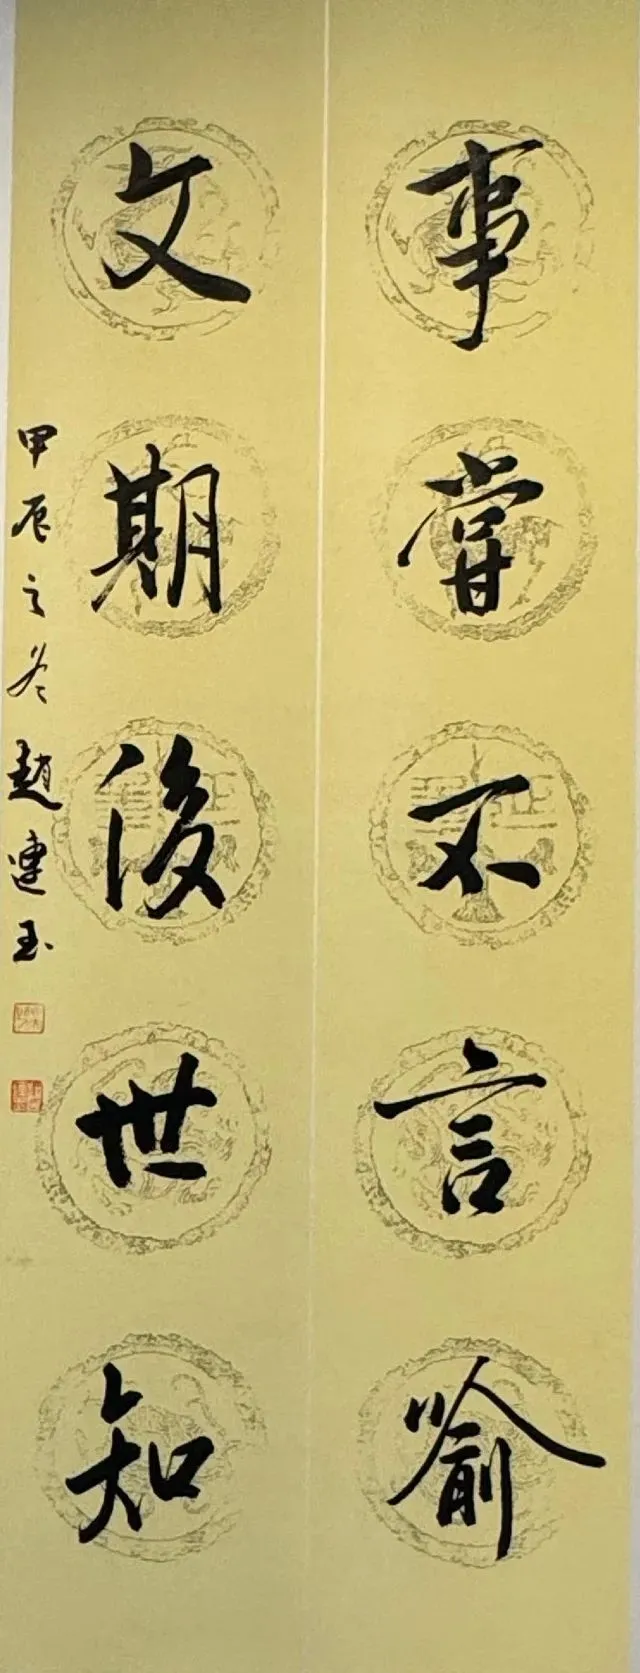 事甞不言喻
文期後世知
甲辰之冬趙連玉